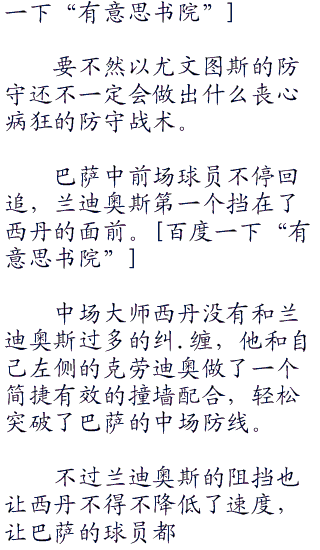 一下“有意思书院”]
要不然以尤文图斯的防
守还不一定会做出什么丧心
病狂的防守战术。
巴萨中前场球员不停回
追，兰迪奥斯第一个挡在了
西丹的面前。[百度一下“有
意思书院”]
中场大师西丹没有和兰
迪奥斯过多的纠.缠，他和自
己左侧的克劳迪奥做了一个
简捷有效的撞墙配合，轻松
突破了巴萨的中场防线。
不过兰迪奥斯的阻挡也
让西丹不得不降低了速度，
让巴萨的球员都